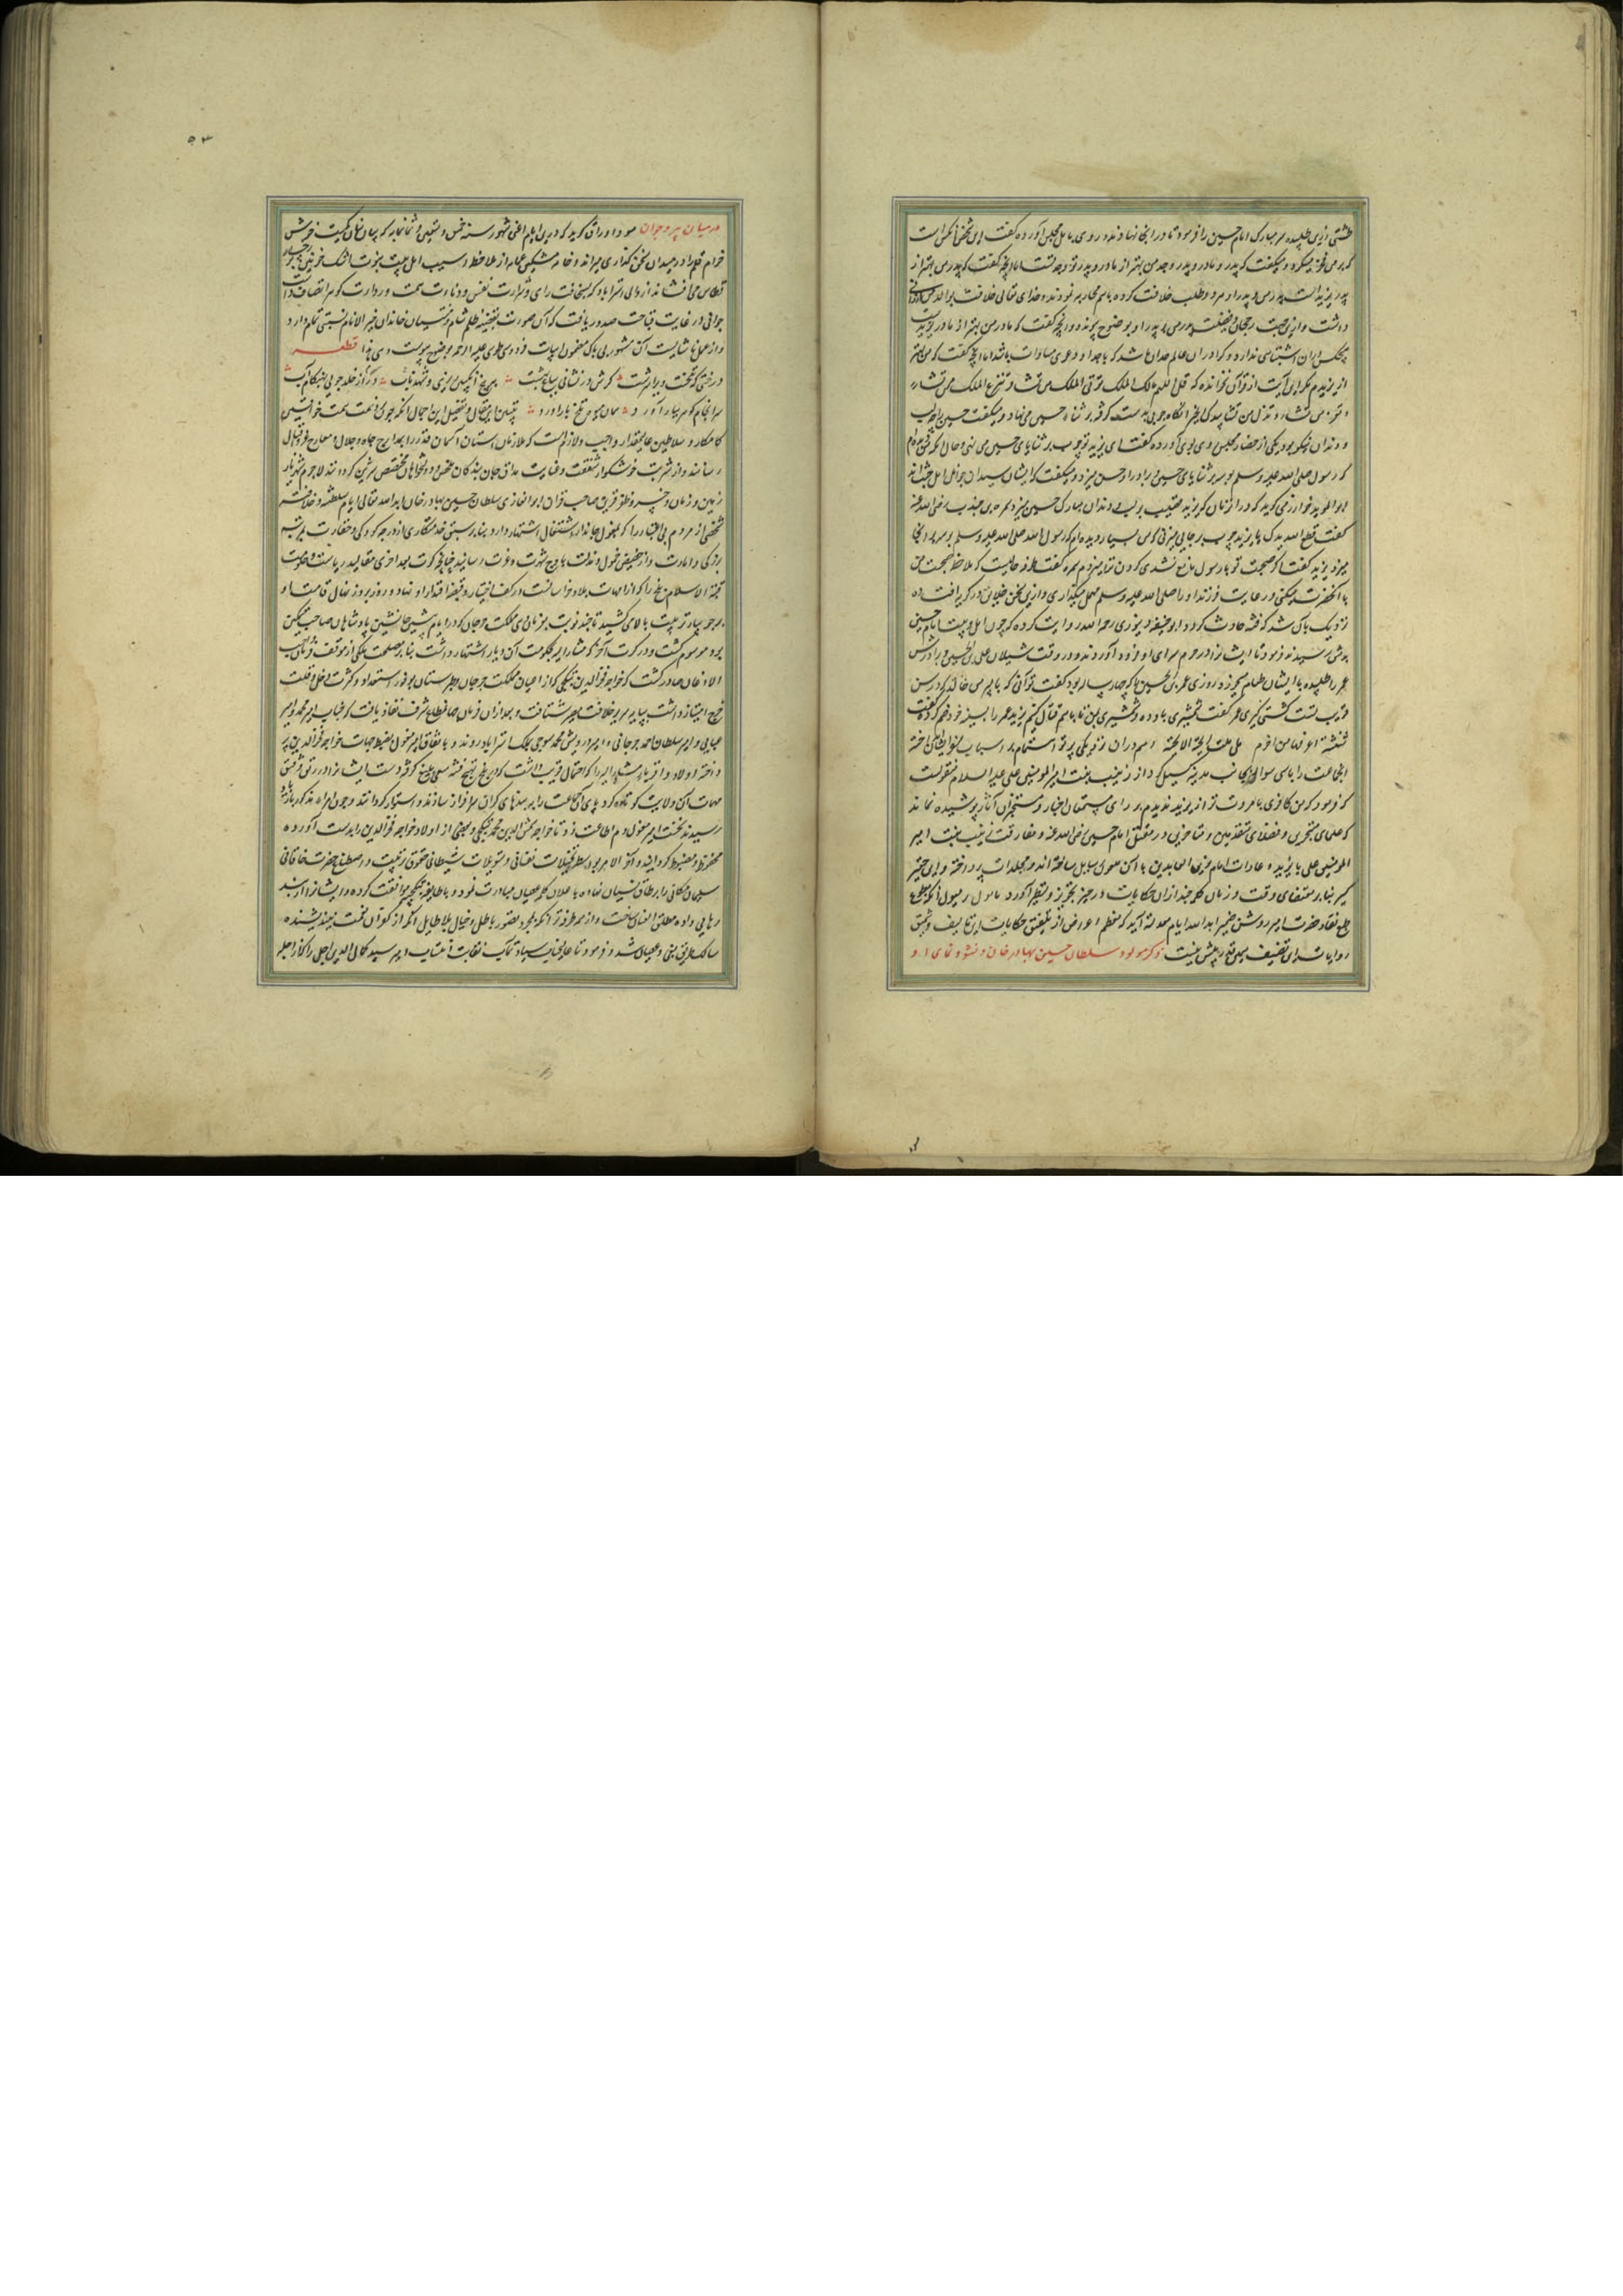 طشتی زرین طلبیده سر مبارک امام حسین را فرمود تا در انجا نهادند و روی با اهل مجلس آورده گفت این شخص آنکس است
که بر من فخر میکرد و میگفت که پدر و مادر و پدر و جد من بهتر از مادر و پدر و جد تست اما آنچه گفت که پدر من بهتر از
پدر یزید است پدر من و پدر او هر دو طلب خلافت کرده باهم محاربه نمودند و خدای تعالی خلافت
داشت و ازین جهت رجحان پدر من بر پدر او بوضوح پیوندد و آنچه گفت که مادر من بهتر از مادر یزید است
هیچکس را درین اشتباهی ندارد و که در آن عالم شد که با جد او دعوی مساوات باشد اما آنچه گفت که من بهتر
از یزیدم مگر این آیت از قرآن نخوانده که قل اللهم مالک الملک توتی الملک من تشاء و تنزع الملک ممن تشاء
و تعز من تشاء و تذل من تشاء بیدک الخیر انگاه چوبی بدست گرفته بر ثنایاء حسین می نهاد و میگفت حسین را لب
و دندان نیکو بود یکی از حضار مجلس روی بوی آورده گفت ای یزید تو چوب بر ثنایای حسین می زنی و حال آنکه من دیدم
که رسول صلی الله علیه و سلم بوسه بر ثنایای حسین و برادر او حسن میزد و میگفت که ایشان سیدان جوانان اهل جنت اند
ابوالموید خوارزمی گوید که در آن زمان که یزید قضیب بر لب و دندان مبارک حسین میزد سمره بن جندب رضی الله عنه
گفت قطع الله یدک یا یزید چوب بر جایی میزنی که من بسیار دیده ام که رسول الله صلی الله علیه و سلم بوسه بر آنجا
میزد یزید گفت اگر صحبت تو با رسول مانع نشدی گردن ترا میزدم سمره گفت طرفه حالیست که ملاحظه صحبت من
با آنحضرت میکنی و رعایت فرزند او را صلی الله علیه و سلم مهمل میگذاری و ازین سخن خلایق در گریه افتاده
نزدیک بان شد که فتنه حادث گردد ابوحنیفه دینوری رحمه الله روایت کرده که چون اهل بیت امام حسین
بدمشق رسیدند فرمود تا ایشانرا در حرم سرای او فرود آوردند و در وقت شیلان علی بن الحسین و برادرش
عمر را طلبیده با ایشان طعام میخورد روزی عمر بن الحسین را که چهار ساله بود گفت توانی که با پسر من خالد که در سن
قریب تست کشتی گیری عمر گفت شمشیری باو ده و شمشیری بمن تا باهم قتال کنیم یزید عمر را بسینه خود ضم کرده گفت
شنشنة اعرفها من اخزم هل تلد الحیة الا الحیة و هم در آن نزدیکی
آنجماعت را بجانب مدینه گسیل کرد از زینب بنت امیر المومنین علی علیه السلام منقولست
که فرمود که من کافری بامروت تر از یزید ندیدم بر رای مستمعان اخبار و مستخبران آثار پوشیده نماند
که علمای متبحرین و فضلای متقدمین و متاخرین در مقتل امام حسین رضی الله عنه و مفارقت زینب بنت امیر
المومنین علی با یزید و محاورات امام زین العابدین با آن ملعون مجلدات پرداخته و این حقیر
کثیر بنابر مقتضای وقت و زمان کلمه چند از آن حکایات در حیز تحریر و تسطیر آورد مامول و مسول آنکه
طبع نقاد حضرت امیر روشن ضمیر ابد الله ایام معدلته آید که معظم اغراض از تلفیق حکایات این تالیف و تنمیق
روایات این تصنیف بیش نیست ذکر مولود سلطان حسین بهادر خان و نشو و نمای او
در میان پیر و جوان مسود اوراق گوید که درین ایام اعنی شهور سنه خمس و تسعین و ثمانمایه که بیان کمیت خوش
خرام قلم را در میدان سخن گذاری میراند و خامه مشکین عمامه از ملاحظه اسیب اهل بیت نبوت اشک خونین بر
قرطاس می افشاند از والی استراباد که بسخافت رای و شرارت نفس و دناءت همت و رداءت گوهر اتصاف داشت
حرکاتی در غایت قباحت صدور یافت که آن صورت بقضیه ظلم شام و شیعیان خاندان خیر الانام نسبتی تمام دارد
و از عمل ناشایست آن مشهور بی باک مضمون ابیات فردوسی طوسی علیه الرحمه بوضوح پیوست و هی هذا قطعه
درختی که تلخست ویرا سرشت گرش در نشانی بباغ بهشت به بیخ انگبین ریزی و شهد ناب ور از خلد جویی بهنگام آب
سرانجام گوهر ببار آورد همان میوه تلخ بار آورد تبیین این مقال و تفصیل این اجمال آنکه چون بر ذمت همت خواقین
کامکار و سلاطین عالیمقدار واجب و لازمست که ملازمان آستان آسمان قدر را بمدارج جاه و جلال و معارج
رسانند و از شربت خوشگوار شفقت و عنایت مذاق جان بندگان مخلص و دولتخواهان مختص شیرین گردانند لاجرم شهریار
زمین و زمان خسرو ظفر قرین صاحب قران ابوالغازی سلطان حسین بهادر خان ابد الله تعالی ایام سلطنته و خلافته
شخصی از مردم بی اعتبار را که بمغول جاندار اشتغال اشتهار دارد بنابر سبق خدمتگاری از درجه کودکی و حقارت بمرتبه
بزرگی و امارت و از حضیض خمول و مذلت باوج شهرت و عزت رسانید چنانچه کرت بعد اخری مقالید ریاست و حکومت
قبة الاسلام بلخ را که از امهات بلاد خراسانست در کف اختیار و قبضه اقتدار او نهاد و روز بروز نهال قامت او
بر جویبار تربیت بالا می کشید تا چند نوبت بفرمان روای مملکت جرجان که در ایام پیشین جانشین پادشاهان صاحب تمکین
بود موسوم گشت و در کرت آخر که مشارالیه بحکومت آن دیار اشتهار داشت بنابر مصلحت ملکی از موقف فرمان واجب
الاذعان صادر گشت که خواجه فخرالدین بتکچی که از اعیان مملکت جرجان و طبرستان بوفور استعداد و کثرت دخل و قلت
خرج امتیاز داشت بپایه سریر خلافت مصیر شتافت و بعد از آن زمان قضا شرف نفاذ یافت که جناب امیر محمد امیر
عباسی و امیر سلطان احمد جرجانی و امیر درویش محمد سوجی بملک استراباد روند و باتفاق امیر مغول بضبط جهات خواجه فخرالدین پر
داخته اولاد و اقرباء مشارالیه را که احتمال قریب داشت که در تهییج فتنه سعی بلیغ کرده دست ایشانرا در رتق و فتق
مهمات آن ولایت کوتاه کرده پای آنجماعت را بندهای گران سرافراز سازند و استوار گردانند و چون امراء مذکور باستراباد
رسیدند نخست امیر مغول دم اطاعت زد تا خواجه شمس الدین محمد بتکچی و بعضی از اولاد خواجه فخرالدین را بدست آورده
محفوظ و مضبوط گردانید و آخر الامر بواسطه تخیلات نفسانی و تسویلات شیطانی حقوق تربیت و اصطناع حضرت خاقانی
سلیمان مکانی را بر طاق نسیان نهاده باعلان کلمه عصیان مبادرت نمود و با طایفه بتکچیه موافقت کرده و ایشانرا از بند
رهایی داده مطلق العنان ساخت و از همه طرفه تر آنکه بمجرد تصور باطل و خیال بلاطایل از کفران نعمت نیندیشنده
سالک طریق بغی و عصیان شد و فرمود تا عالیجناب سیادتمآب نقابت انتساب امیر سید کمال الدین اجل را که از اجله